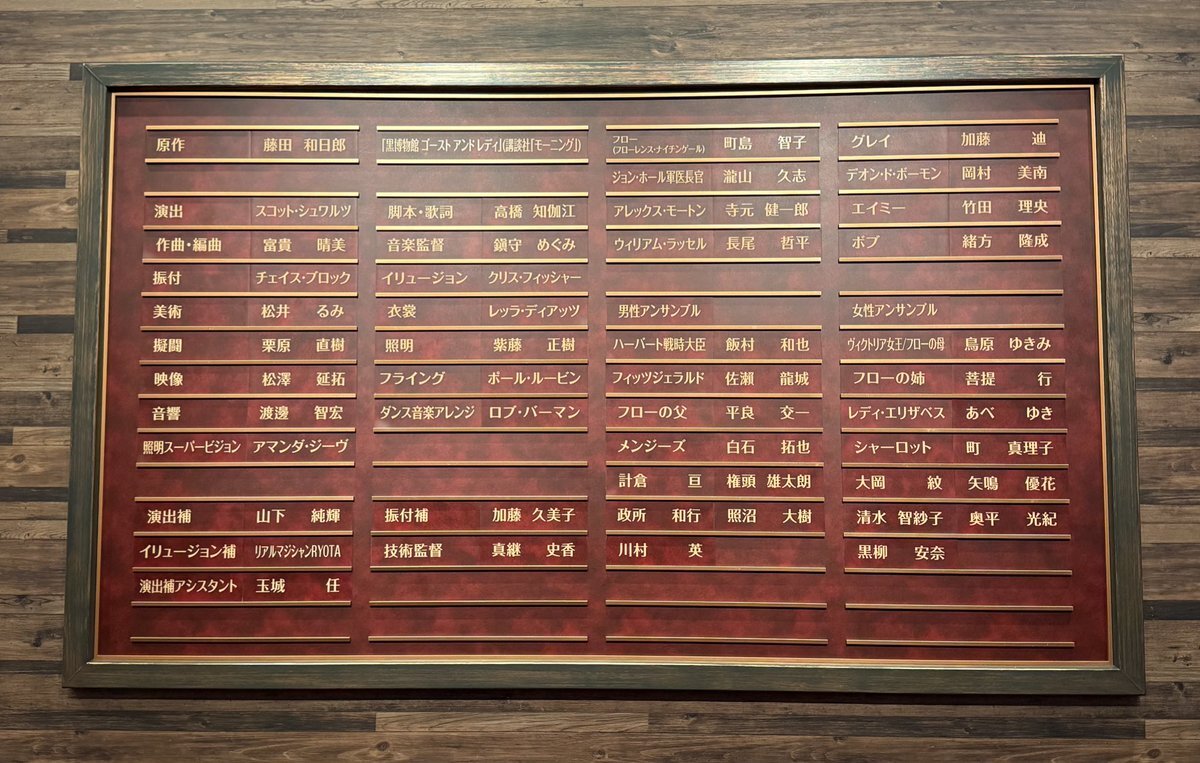 原作 藤田 和日郎
「黒博物館 ゴースト アンド レディ」(講談社「モーニング」)
演出 スコット・シュワルツ
脚本・歌詞 高橋 知伽江
作曲・編曲 富貴 晴美
音楽監督 鎭守 めぐみ
振付 チェイス・ブロック
イリュージョン クリス・フィッシャー
美術 松井 るみ
衣裳 レッラ・ディアッツ
擬闘 栗原 直樹
照明 紫藤 正樹
映像 松澤 延拓
フライング ポール・ルービン
音響 渡邊 智宏
ダンス音楽アレンジ ロブ・バーマン
照明スーパービジョン アマンダ・ジーヴ
演出補 山下 純輝
振付補 加藤 久美子
イリュージョン補 リアルマジシャンRYOTA
技術監督 真継 史香
演出補アシスタント 玉城 任
フロー
(フローレンス・ナイチンゲール) 町島 智子
グレイ 加藤 迪
ジョン・ホール軍医長官 瀧山 久志
デオン・ド・ボーモン 岡村 美南
アレックス・モートン 寺元 健一郎
エイミー 竹田 理央
ウィリアム・ラッセル 長尾 哲平
ボブ 緒方 隆成
男性アンサンブル
ハーバート戦時大臣 飯村 和也
フィッツジェラルド 佐瀬 龍城
フローの父 平良 交一
メンジーズ 白石 拓也
計倉 亘 権頭 雄太朗
政所 和行 照沼 大樹
川村 英
女性アンサンブル
ヴィクトリア女王/フローの母 鳥原 ゆきみ
フローの姉 菩提 行
レディ・エリザベス あべ ゆき
シャーロット 町 真理子
大岡 紋 矢鳴 優花
清水 智紗子 奥平 光紀
黒柳 安奈